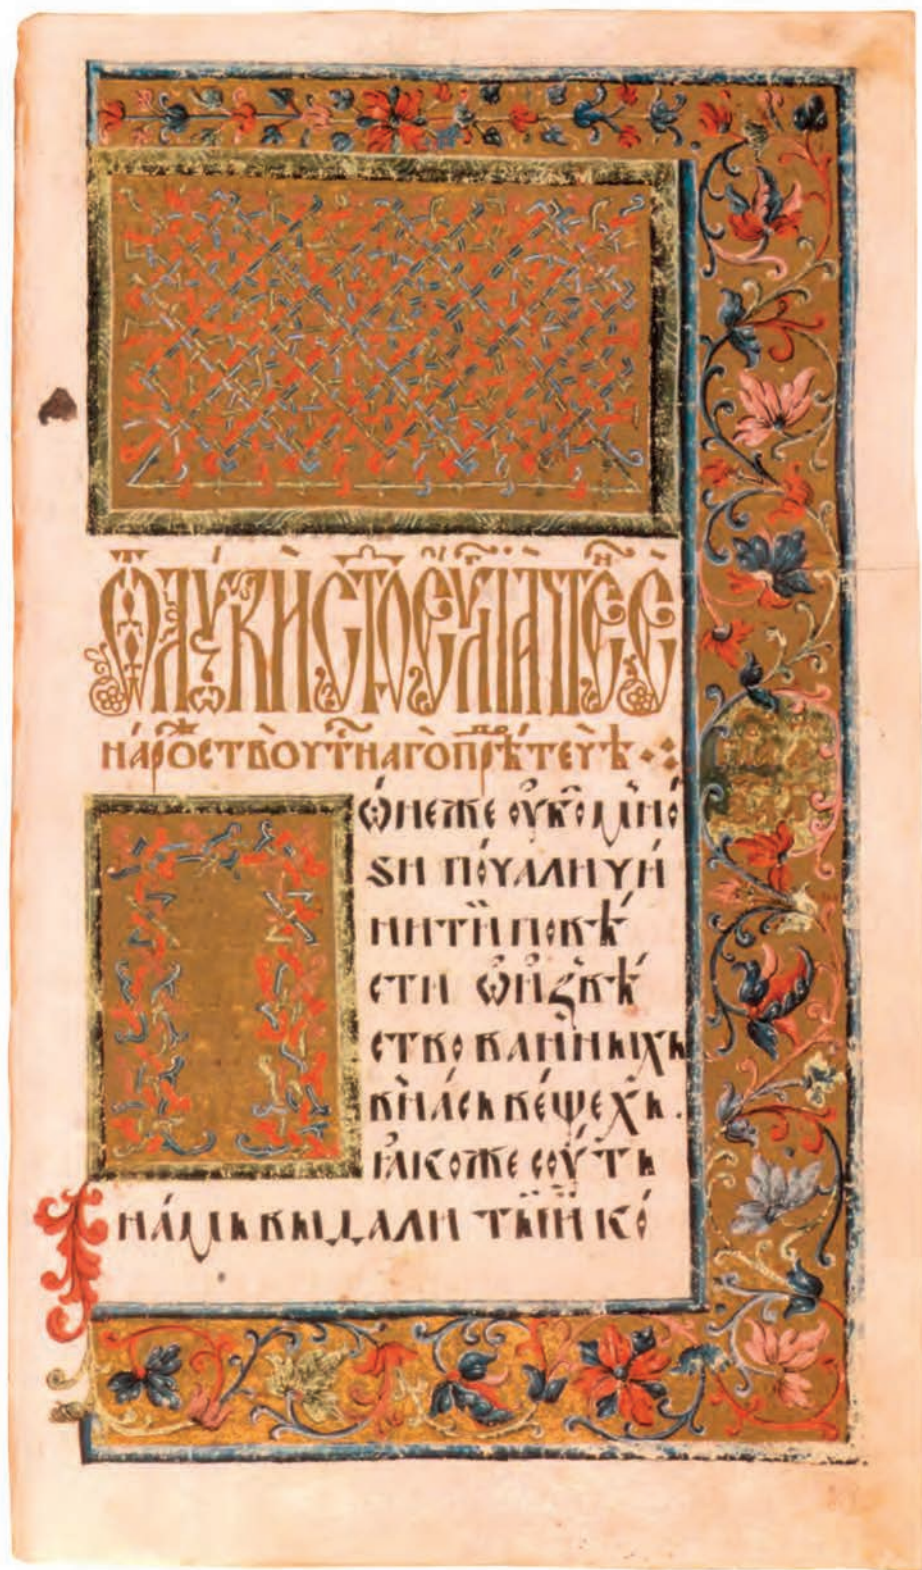 Ѿ лꙋки ст҃ое еѵⷢ҇лїа чтеⷩ҇е
на роⷤство чⷭ҇тнаго прⷣѣтечѣ ⁘
Пѡ́неже ᲂу҆ко́ мно́
ѕи по́чали чи́
нити повѣ́
сти ѡ҆ и҆звѣ́
ствова́нныхъ
в на́съ ве́щехъ.
ꙗ҆коже соу́ть
на́мъ выдали тыи ко́